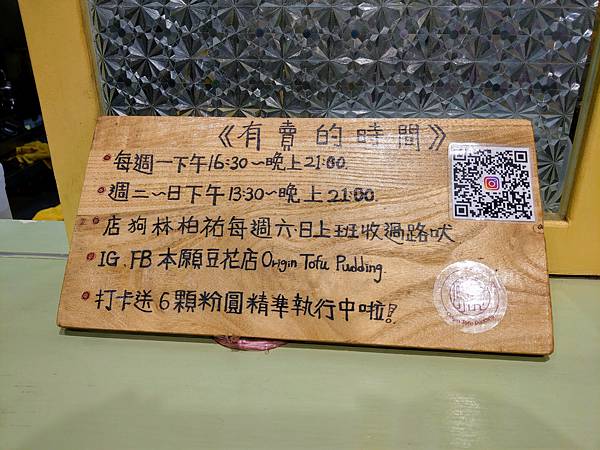 《有賣的時間》
每週一下午16:30~晚上21:00.
週二~日下午13:30~晚上21:00.
店狗林柏祐每週六.日上班收過路吠
IG.FB本願豆花店Origin Tofu Pudding.
打卡送6顆粉圓精準執行中啦!